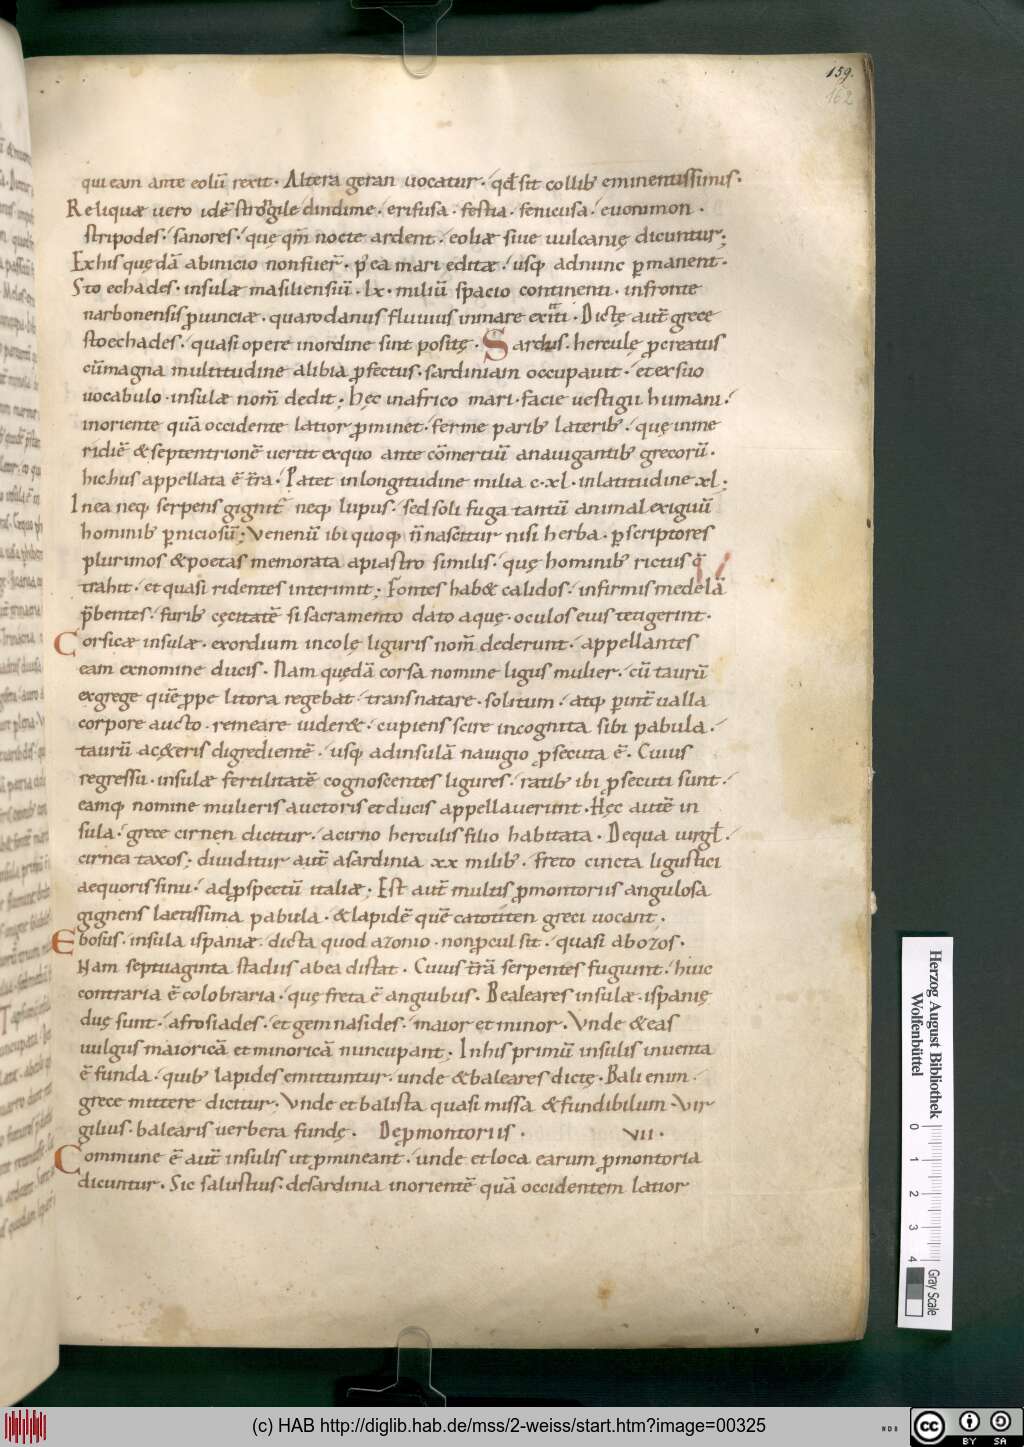 159.
162
qui eam ante eolū rexit · Altera geran uocatur · qđ sit collib; eminentissimis ·
Reliquæ uero idē strogile dindime · erifusa · festia · fenicusa · euonimon ·
stripodes · sanores · quę qm̄ nocte ardent · eoliæ siue uulcanię dicuntur;
Ex his quędā ab inicio non fuer̄ · p̄ea mari editæ · usq; ad nunc ꝑmanent ·
Sto echades · insulæ masiliensiū · lx · miliū spacio continenti · in fronte
narbonensis ꝓuinciæ · qua rodanus fluuius in mare exiit · Dictę aut̄ grece
stoechades · quasi opere in ordine sint positę · Sardus · herculę ꝓcreatus
cū magna multitudine a libia ꝓfectus · sardiniam occupauit · et ex suo
uocabulo · insulæ nom̄ dedit; hęc in africo mari · facie uestigii humani ·
in oriente quā occidente latior ꝓminet · ferme parib; laterib; · quę in me
ridiē & septentrionē uertit ex quo ante cōmertiū a nauigantib; grecorū ·
hichus appellata ē t̄ra · Patet in longitudine milia c · xl · in latitudine xl;
In ea neq; serpens gignit̄ neq; lupus · sed soli fuga tantū animal exiguū
hominib; ꝑniciosū; Venenū ibi quoq; n̄ nascitur nisi herba · ꝑ scriptores
plurimos & poetas memorata apiastro similis · quę hominib; rictus q̄
trahit · et quasi ridentes interimit; Fontes hab& calidos · infirmis medelā
p̄bentes · furib; cęcitatē si sacramento dato aquę · oculos eius tetigerint ·
Corsicæ insulæ · exordium incolę liguris nom̄ dederunt · appellantes
eam ex nomine ducis · Nam quędā corsa nomine ligus mulier · cū taurū
ex grege quē ꝓpe litora regebat · transnatare · solitum · atq; ꝑ int̄ualla
corpore aucto · remeare uider& · cupiens scire incognita sibi pabula ·
taurū a c&eris digredientē · usq; ad insulā nauigio ꝓsecuta ē · Cuius
regressu · insulæ fertilitatē cognoscentes ligures · ratib; ibi ꝓfecuti sunt ·
eamq; nomine mulieris auctoris et ducis appellauerunt · Hęc autē in
sula · grece cirnen dicitur · a cirno herculis filio habitata · De qua uirgł ·
cirnea taxos; diuiditur aut̄ a sardinia xx milib; · freto cincta ligustici
aequoris sinu · ad ꝓspectū italiæ; Est aut̄ multis ꝓmontoriis angulosa
gignens laetissima pabula · & lapidē quē catotiten greci uocant ·
Ebosus · insula ispaniæ · dicta quod a zonio · non ꝓcul sit · quasi abozos ·
Nam septuaginta stadiis ab ea distat · Cuius t̄rā serpentes fugiunt · huic
contraria ē colobraria · quę freta ē anguibus · Bealeares insulæ · ispanię
duę sunt · afrosiades · et gemnasides · maior et minor · Vnde & eas
uulgus maioricā et minoricā nuncupant; In his primū insulis inuenta
ē funda · quib; lapides emittuntur · unde & baleares dictę · Bali enim ·
grece mittere dicitur · Vnde et balista quasi missa & fundibilum · Vir
gilius · balearis uerbera fundę · De ꝓmontoriis · VII ·
Commune ē aut̄ insulis ut ꝓmineant · unde et loca earum ꝓmontoria
dicuntur · Sic salustius · de sardinia in orientē quā occidentem latior
Herzog August Bibliothek
Wolfenbüttel
0 1 2 3 4
Gray Scale
(c) HAB http://diglib.hab.de/mss/2-weiss/start.htm?image=00325
cc BY SA